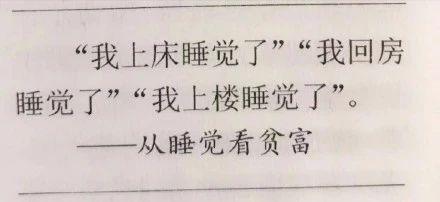 “我上床睡觉了”“我回房
睡觉了”“我上楼睡觉了”。
——从睡觉看贫富